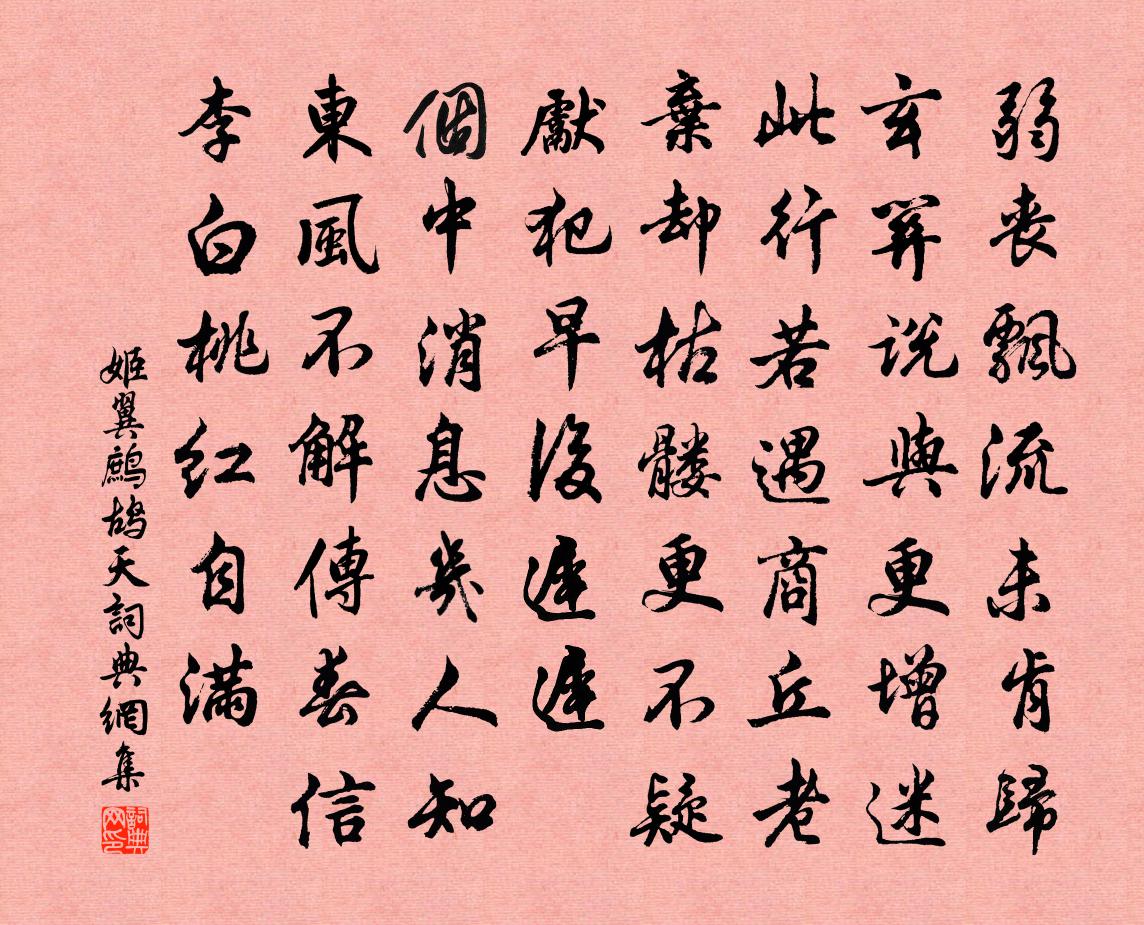 弱喪飄流未肯歸
玄關說與更增迷
此行若遇商丘老
棄却枯髏更不疑
獻犯早後遲遲
個中消息幾人知
東風不解傳春信
李白桃紅自滿
姬翼鷓鴣天詞典網集
詞典网印